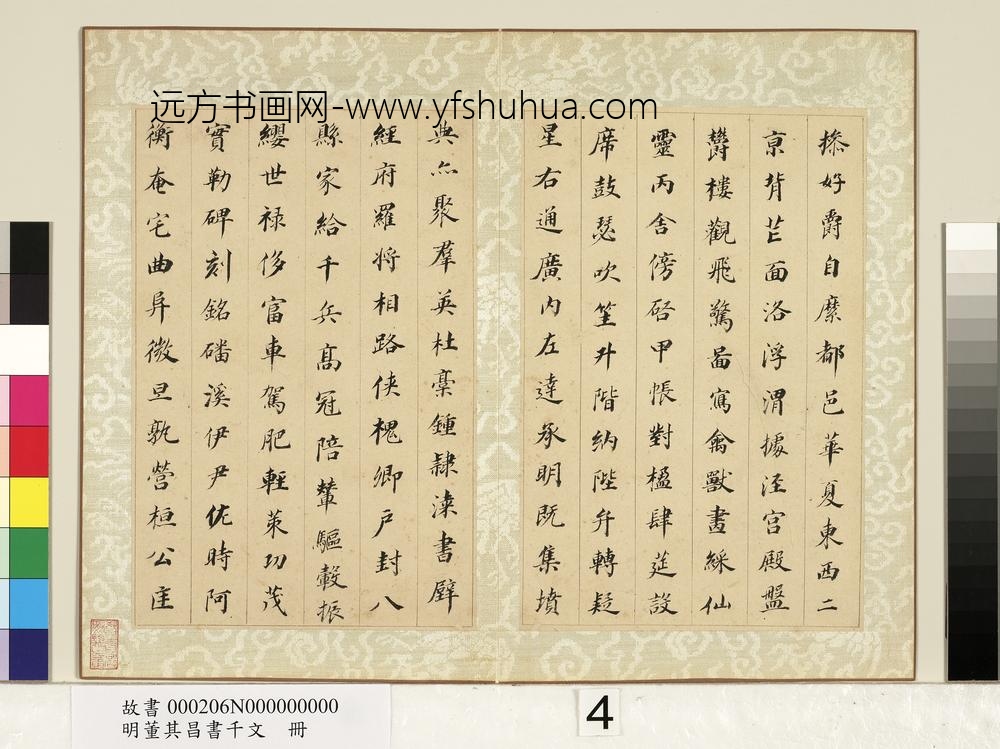 远方书画网-www.yfshuhua.com
操好爵自縻都邑華夏東西二
京背芒面洛浮渭據涇宮殿盤
欝樓觀飛驚啚寫禽獸畫綵仙
靈丙舍傍啓甲帳對楹肆莚設
席鼓瑟吹笙升階納陛弁轉疑
星右通廣內左達承明既集墳
典亦聚羣英杜稾鍾隸漆書壁
經府羅將相路俠槐卿户封八
縣家給千兵高冠陪輦驅轂振
纓世禄侈富車駕肥輕策功茂
實勒碑刻銘磻溪伊尹佐時阿
衡奄宅曲阜微旦孰營桓公匡
故書 000206N000000000
明董其昌書千文 冊
4